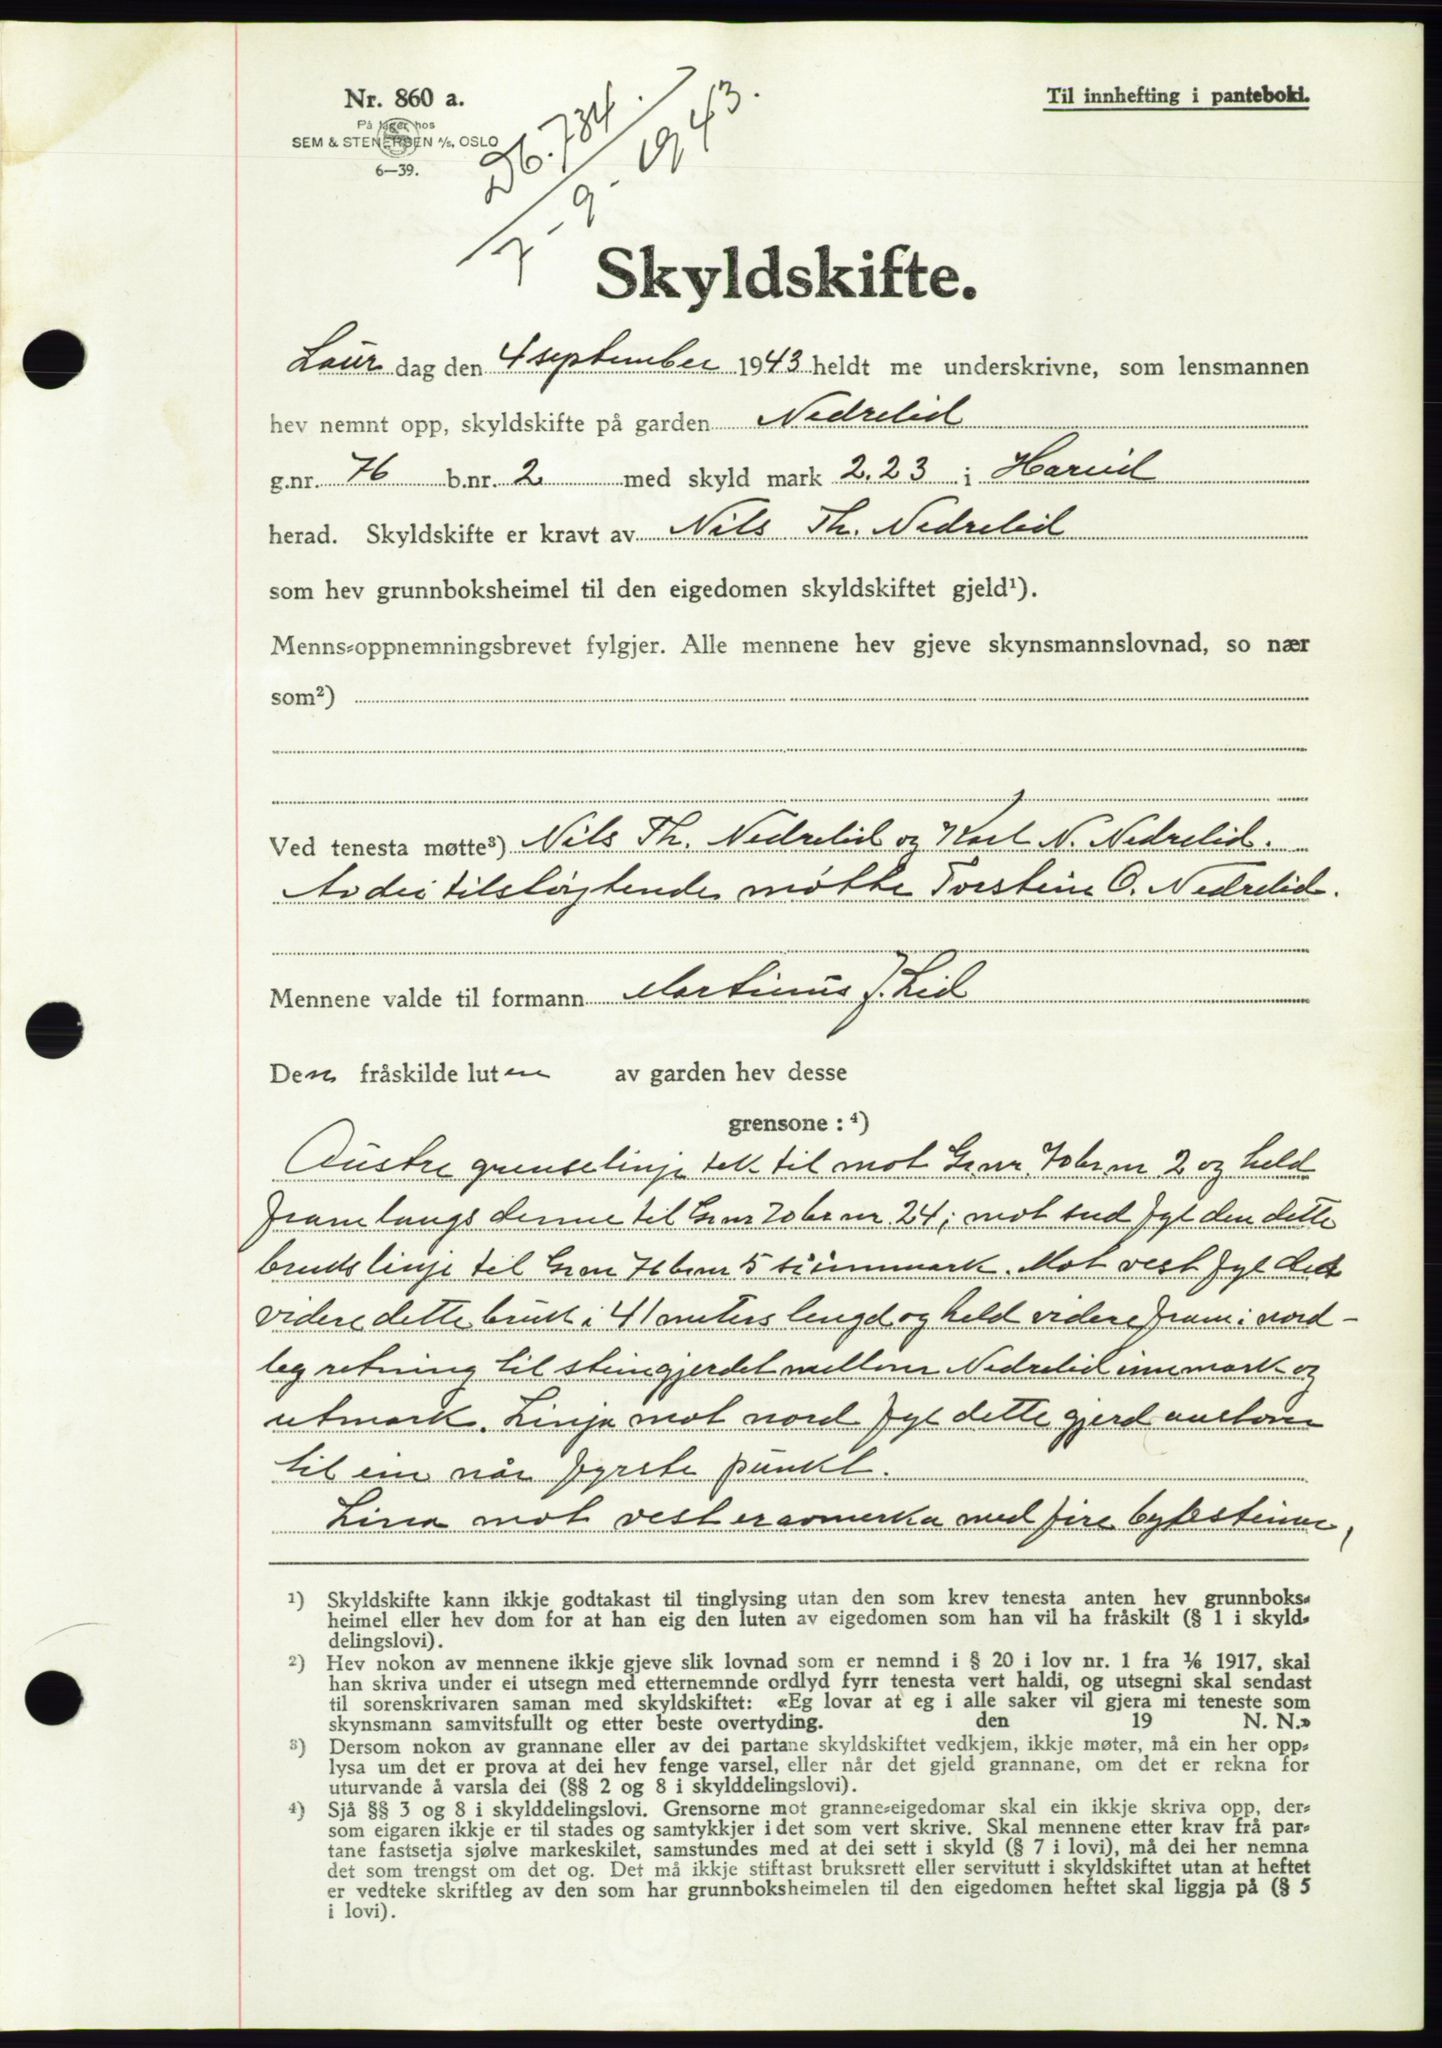 Nr. 860 a.
På lager hos
SEM & STENERSEN A/S, OSLO
6—39.
Db. 734.
7-9-1943.
Til innhefting i panteboki.
Skyldskifte.
Laur dag den 4 september 1943 heldt me underskrivne, som lensmannen
hev nemnt opp, skyldskifte på garden Nedrelid
g.nr. 76 b.nr. 2 med skyld mark 2.23 i Hareid
herad. Skyldskifte er kravt av Nils Th. Nedrelid
som hev grunnboksheimel til den eigedomen skyldskiftet gjeld¹).
Menns-oppnemningsbrevet fylgjer. Alle mennene hev gjeve skynsmannslovnad, so nær
som²)
Ved tenesta møtte³) Nils Th. Nedrelid og Karl N. Nedrelid.
Av dei tilstøytende møtte Torstein O. Nedrelid.
Mennene valde til formann Martinus J. Lid
Den fråskilde luten av garden hev desse
grensone : ⁴)
Austre grenselinje tek til mot Gr.nr. 70 br.nr. 2 og held
fram langs denne til Gr.nr 70 br.nr. 24; mot sud fyl den dette
bruks linje til Gr.nr 76 br.nr 5 si innmark. Mot vest fyl det
videre dette bruk i 41 meters lengd og held videre fram i nord-
leg retning til steingjerdet mellom Nedrelid innmark og
utmark. Linja mot nord fyl dette gjerd austover
til ein når fyrste punkt.
Lina mot vest er avmerka med fire bytesteinar,
¹) Skyldskifte kann ikkje godtakast til tinglysing utan den som krev tenesta anten hev grunnboks-
heimel eller hev dom for at han eig den luten av eigedomen som han vil ha fråskilt (§ 1 i skyld-
delingslovi).
²) Hev nokon av mennene ikkje gjeve slik lovnad som er nemnd i § 20 i lov nr. 1 fra 1/6 1917, skal
han skriva under ei utsegn med etternemnde ordlyd fyrr tenesta vert haldi, og utsegni skal sendast
til sorenskrivaren saman med skyldskiftet: «Eg lovar at eg i alle saker vil gjera mi teneste som
skynsmann samvitsfullt og etter beste overtyding. den 19 N. N.»
³) Dersom nokon av grannane eller av dei partane skyldskiftet vedkjem, ikkje møter, må ein her opp-
lysa um det er prova at dei hev fenge varsel, eller når det gjeld grannane, om det er rekna for
uturvande å varsla dei (§§ 2 og 8 i skylddelingslovi).
⁴) Sjå §§ 3 og 8 i skylddelingslovi. Grensorne mot granne-eigedomar skal ein ikkje skriva opp, der-
som eigaren ikkje er til stades og samtykkjer i det som vert skrive. Skal mennene etter krav frå par-
tane fastsetja sjølve markeskilet, samstundes med at dei sett i skyld (§ 7 i lovi), må dei her nemna
det som trengst om det og. Det må ikkje stiftast bruksrett eller servitutt i skyldskiftet utan at heftet
er vedteke skriftleg av den som har grunnboksheimelen til den eigedomen heftet skal liggja på (§ 5
i lovi).